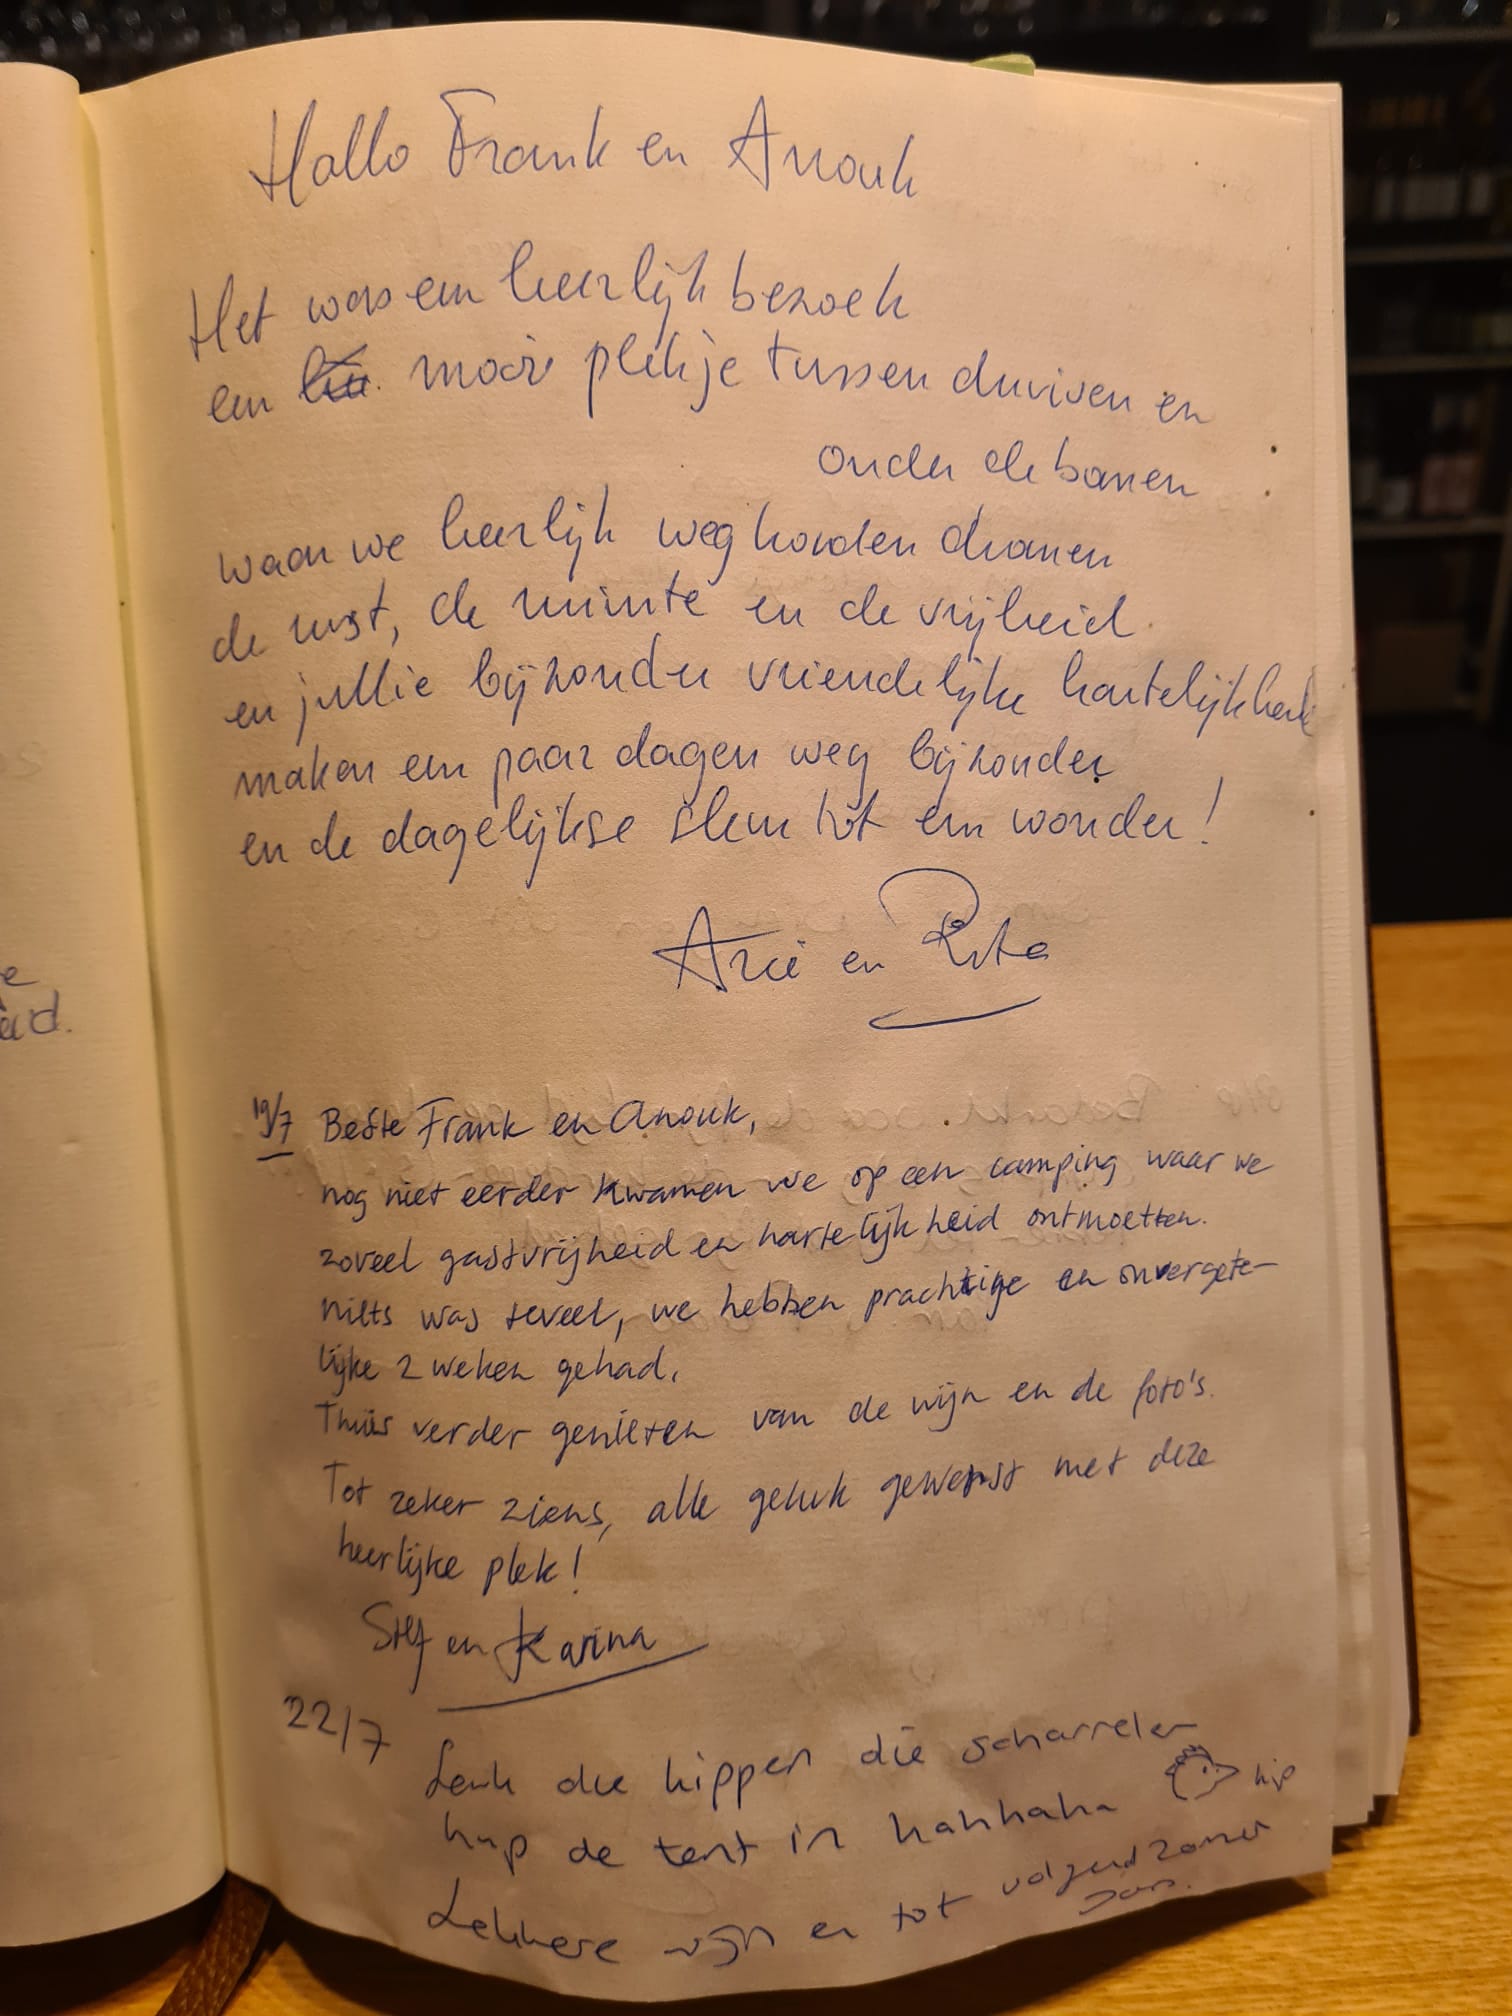 Hallo Frank en Anouk
Het was een heerlijk bezoek
een mooi plekje tussen druiven en
onder de bomen
waar we heerlijk weg konden dromen
de rust, de ruimte en de vrijheid
en jullie bijzonder vriendelijke hartelijkheid
maken een paar dagen weg bijzonder
en de dagelijkse sleur tot een wonder!
Arie en Rita
19/7 Beste Frank en Anouk,
nog niet eerder kwamen we op een camping waar we
zoveel gastvrijheid en hartelijkheid ontmoetten.
niets was teveel, we hebben prachtige en onvergete-
lijke 2 weken gehad.
Thuis verder genieten van de wijn en de foto's.
Tot zeker ziens, alle geluk gewenst met deze
heerlijke plek!
Stef en Karina
22/7
Leuk die kippen die scharrelen
hup de tent in hahhaha kip
Lekkere wijn en tot volgend zomer